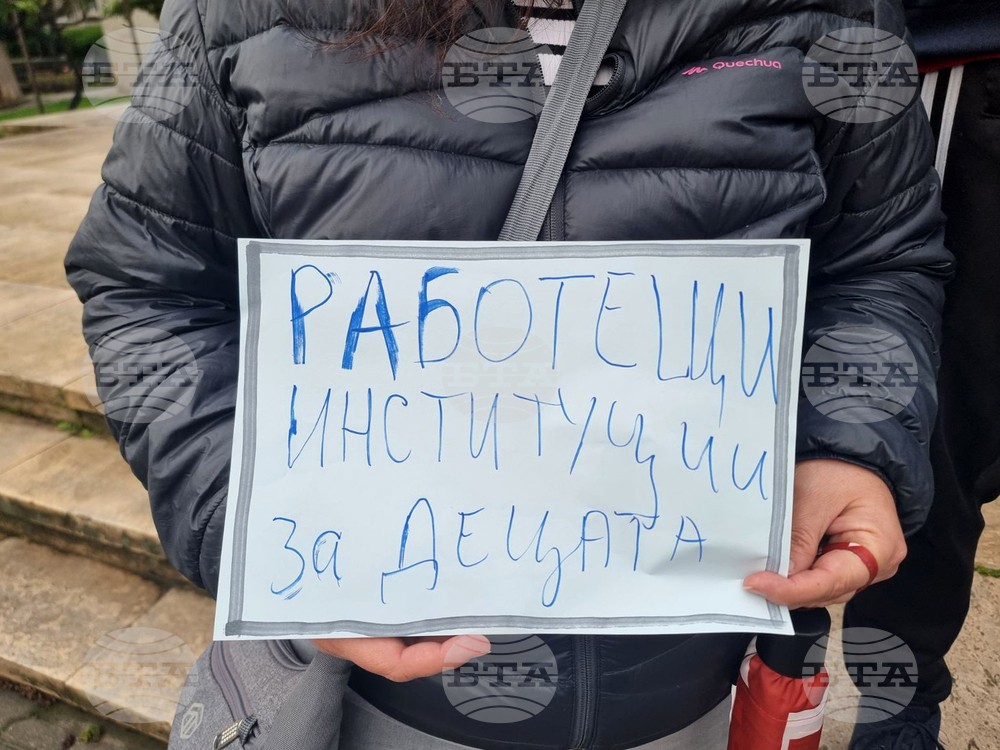 Quechua
РАБОТЕЩИ
ИНСТИТУЦИИ
за ДЕЦАТА
БТА
БТА
БТА
БТА
БТА
БТА
БТА
БТА